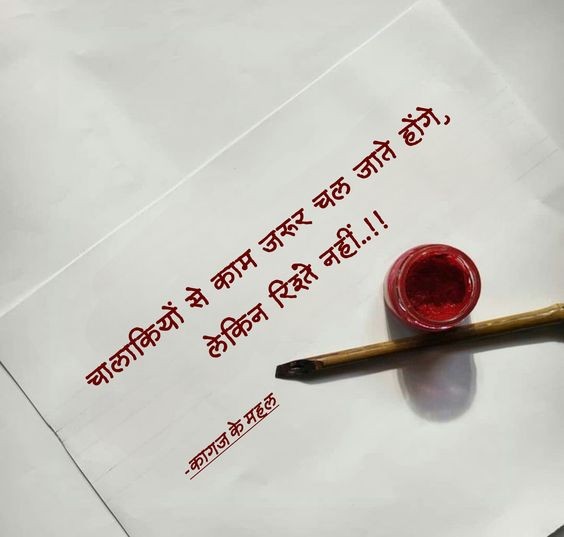 चालाकियों से काम जरूर चल जाते होंगे,
लेकिन रिश्ते नहीं..!!
-कागज के महल